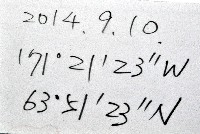 2014.9.10.
171°21'23"W
63°51'23"N